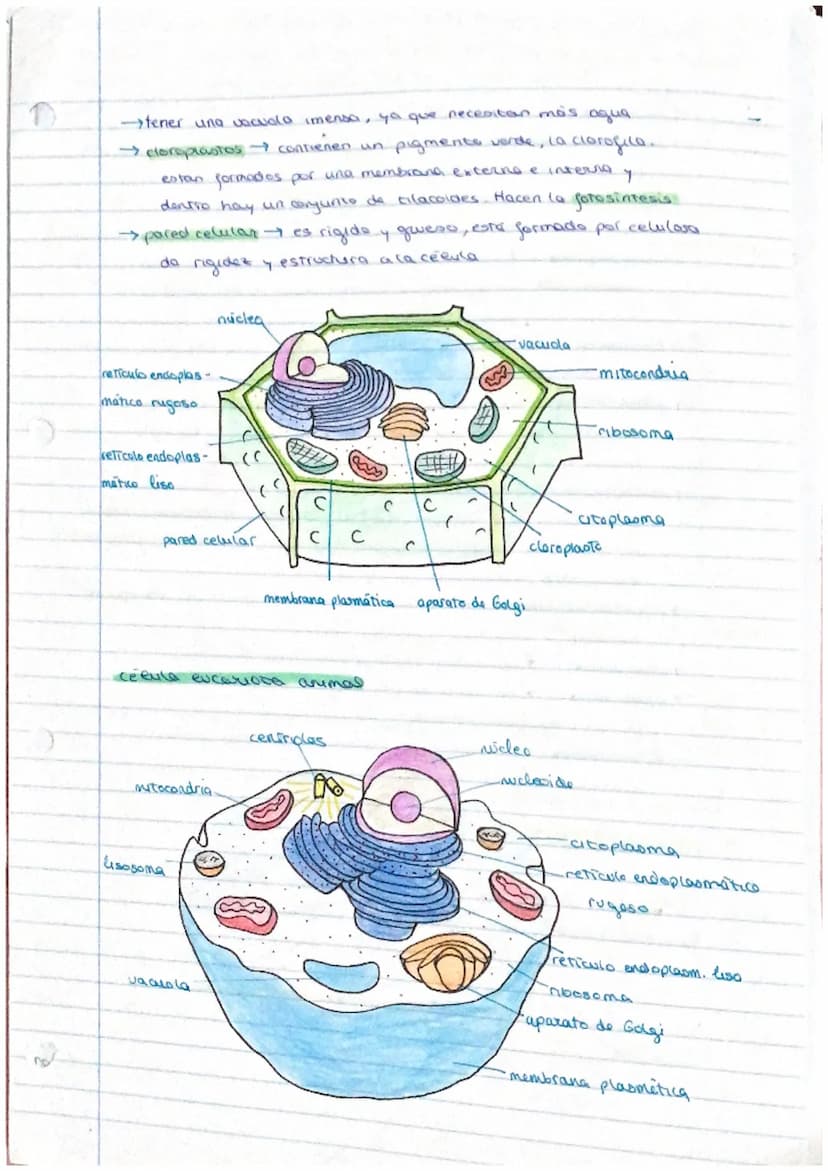 → tener una vacuola imensa, ya que necesitan más agua
→ cloroplastos → contienen un pigmento verde, la clorofila.
estan formados por una membrana externa e interna y
dentro hay un conjunto de tilacoides. Hacen la fotosíntesis
→ pared celular → es rigida y gruesa, está formada por celulosa
da rigidez y estructura a la célula
núcleo
vacuola
retículo endoplas-
mático rugoso
mitocondria
ribosoma
retículo endoplas-
mático liso
citoplasma
pared celular
cloroplasto
membrana plasmática
aparato de Golgi
célula eucariota animal
centriolos
núcleo
mitocondria
nucleoide
citoplasma
lisosoma
retículo endoplasmático
rugoso
retículo endoplasm. liso
vacuola
ribosoma
aparato de Golgi
membrana plasmática